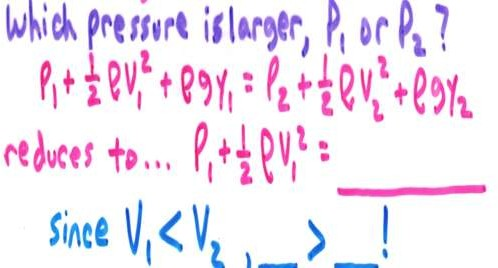 Which pressure is larger, P₁ or P₂?
P₁ + ½ρV₁² + ρgy₁ = P₂ + ½ρV₂² + ρgy₂
reduces to... P₁ + ½ρV₁² = ______
since V₁ < V₂, __ > __!